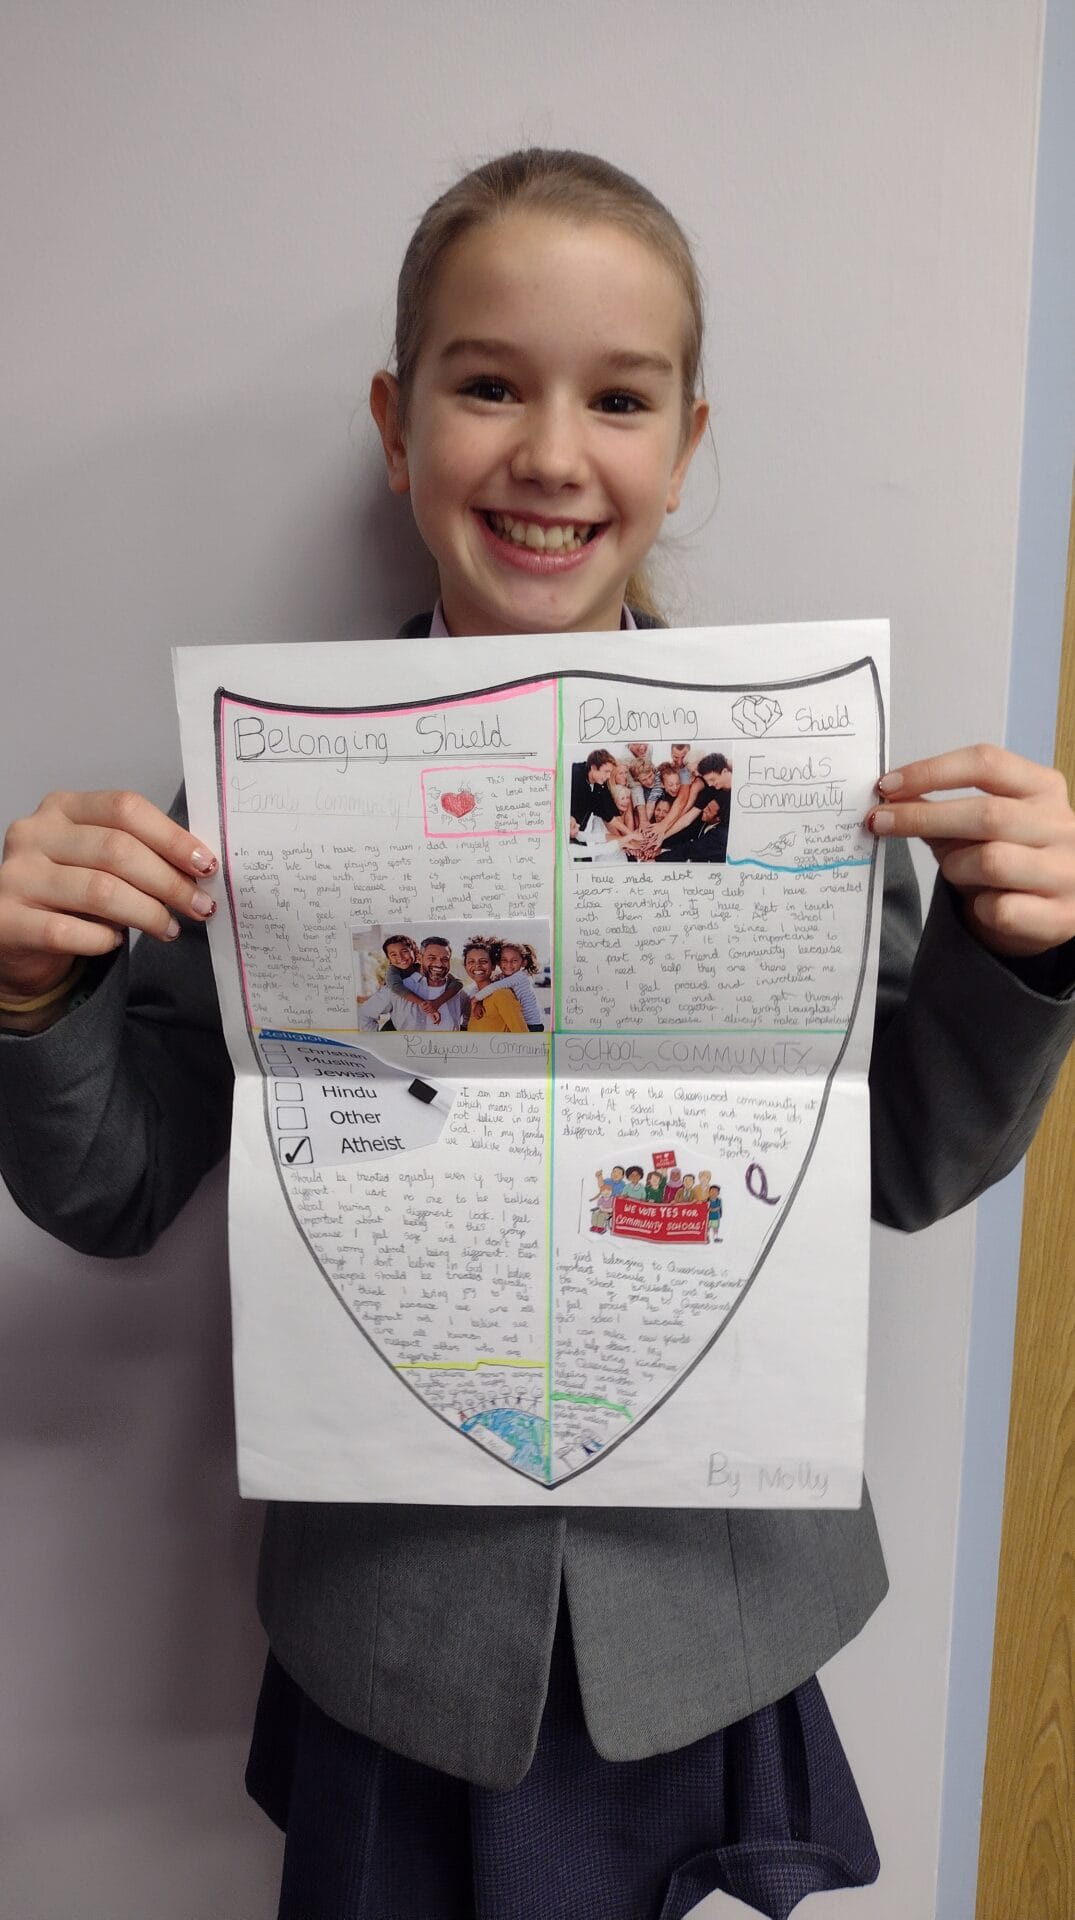 Belonging Shield
Family Community!
This represents
a love heart
because every
one in my
family loves
me
• In my family I have my mum, dad, myself and my
sister. We love playing sports together and I love
spending time with them. It is important to be
part of my family because they help me be brave
and help me learn things I would never have
this group because I
and help them get
stronger. I bring joy
to the family
laughter to my family
as she is funny.
She always makes
me laugh.
Belonging Shield
Friends
Community
This
kindness
because a
good friend is
I have made alot of friends over the
years. At my hockey club I have created
close friendships. I have kept in touch
with them all my life. At school I
have created new friends since I have
started year 7. It is important to
be part of a Friend Community because
if I need help they are there for me
always. I feel proud and involved
in my group and we get through
lots of things together. I bring laughter
to my group because I always make people laugh
Religion
Christian
Muslim
Jewish
Hindu
Other
✓ Atheist
Religious Community
• I am an athiest
which means I do
not belive in any
God. In my family
we belive everybody
should be treated equaly even if they are
different. I want no one to be bullied
about having a different look. I feel
important about being in this group
because I feel safe and I don't need
to worry about being different. Even
though I don't belive in God I belive
everyone should be treated equaly.
I think I bring joy to the
group because we are all
different and I belive we
are all human and I
respect others who are
different.
SCHOOL COMMUNITY
• I am part of the Queenswood community at
school. At school I learn and make lots
of friends. I participate in a varity of
different clubs and enjoy playing different
sports.
WE VOTE YES FOR
COMMUNITY SCHOOLS!
I find belonging to Queenswood is
important because I can represent
the school brilliantly and be
proud of going to Queenswood.
I feel proud to go to
this school because
I can make new friends
and help others. My
friends bring kindness
to Queenswood by
helping
By Molly